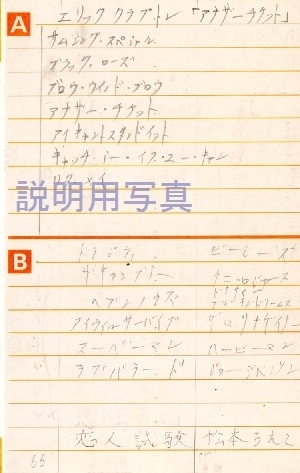 A
エリック クラプトン 「アナザーチケット」
サムシング・スペシャル
ブラック・ローズ
ブロウ・ウインド・ブロウ
アナザー・チケット
アイキャントスタンドイット
キャッチ・ミー・イフ・ユー・キャン
リタ メイ
説明用写真
B
ヘブンノウズ
アイウィルサーバイブ
スーパーマン ベービーマン
ラブバラード ジョージベンソン
恋人試験 松本ちえこ